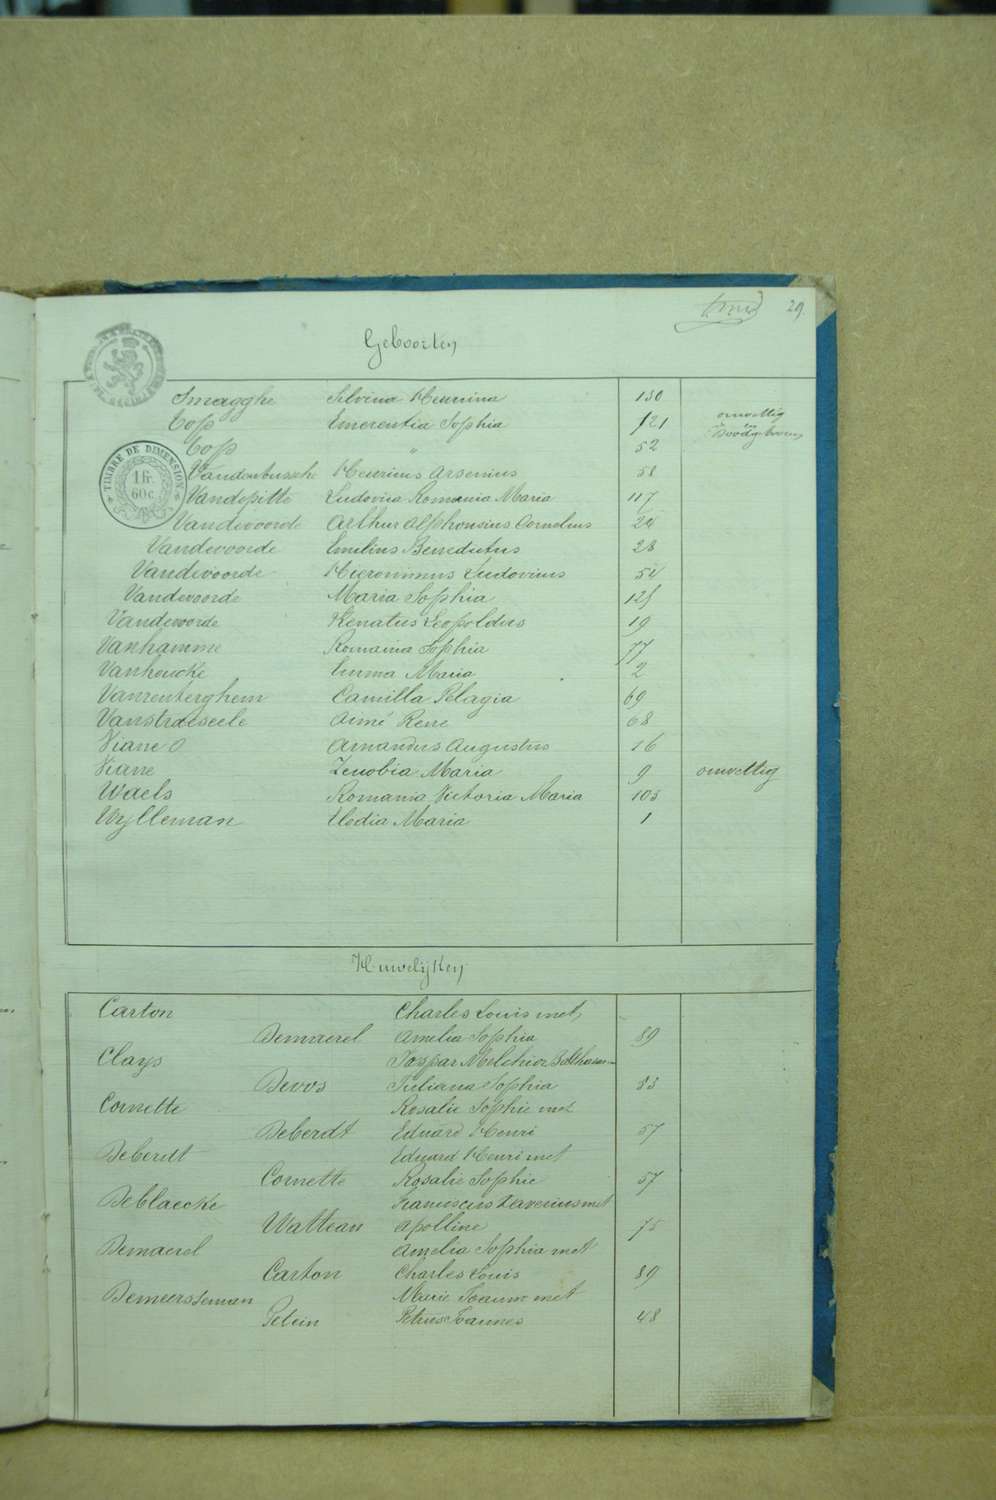 29.
Geboorten
Smagghe Silvina Henrina 130
Top Emerentia Sophia 121 onwettig
Top " 52 Doodgeboren
TIMBRE DE DIMENSION
1 fr. 60 c.
Vandenbussche Henricus Arsenius 58
Vandepitte Ludovica Romania Maria 117
Vandevoorde Arthur Alphonsius Cornelius 24
Vandevoorde Emilius Benedictus 28
Vandevoorde Hieronimus Ludovicus 54
Vandevoorde Maria Sophia 125
Vandevoorde Renatus Leopoldus 19
Vanhamme Romaina Sophia 77
Vanhoucke Emma Maria 2
Vanrenterghem Camilla Pelagia 69
Vanstraeseele Aimé René 68
Viane Amandus Augustus 16
Viane Zenobia Maria 9 onwettig
Waels Romania Victoria Maria 103
Wylleman Maria 1
Huwelijken
Carton Charles Louis met
Demaerel Amelia Sophia 89
Clays Gaspar Melchior
Devos Juliana Sophia 83
Cornette Rosalie Sophie met
Deberdt Eduard Henri 57
Deberdt Eduard Henri met
Cornette Rosalie Sophie 57
Deblaecke Franciscus Xaverius met
Watteau Apolline 75
Demaerel Amelia Sophia met
Carton Charles Louis 89
Demeersseman Marie Joanne met
Gelein Petrus Joannes 48